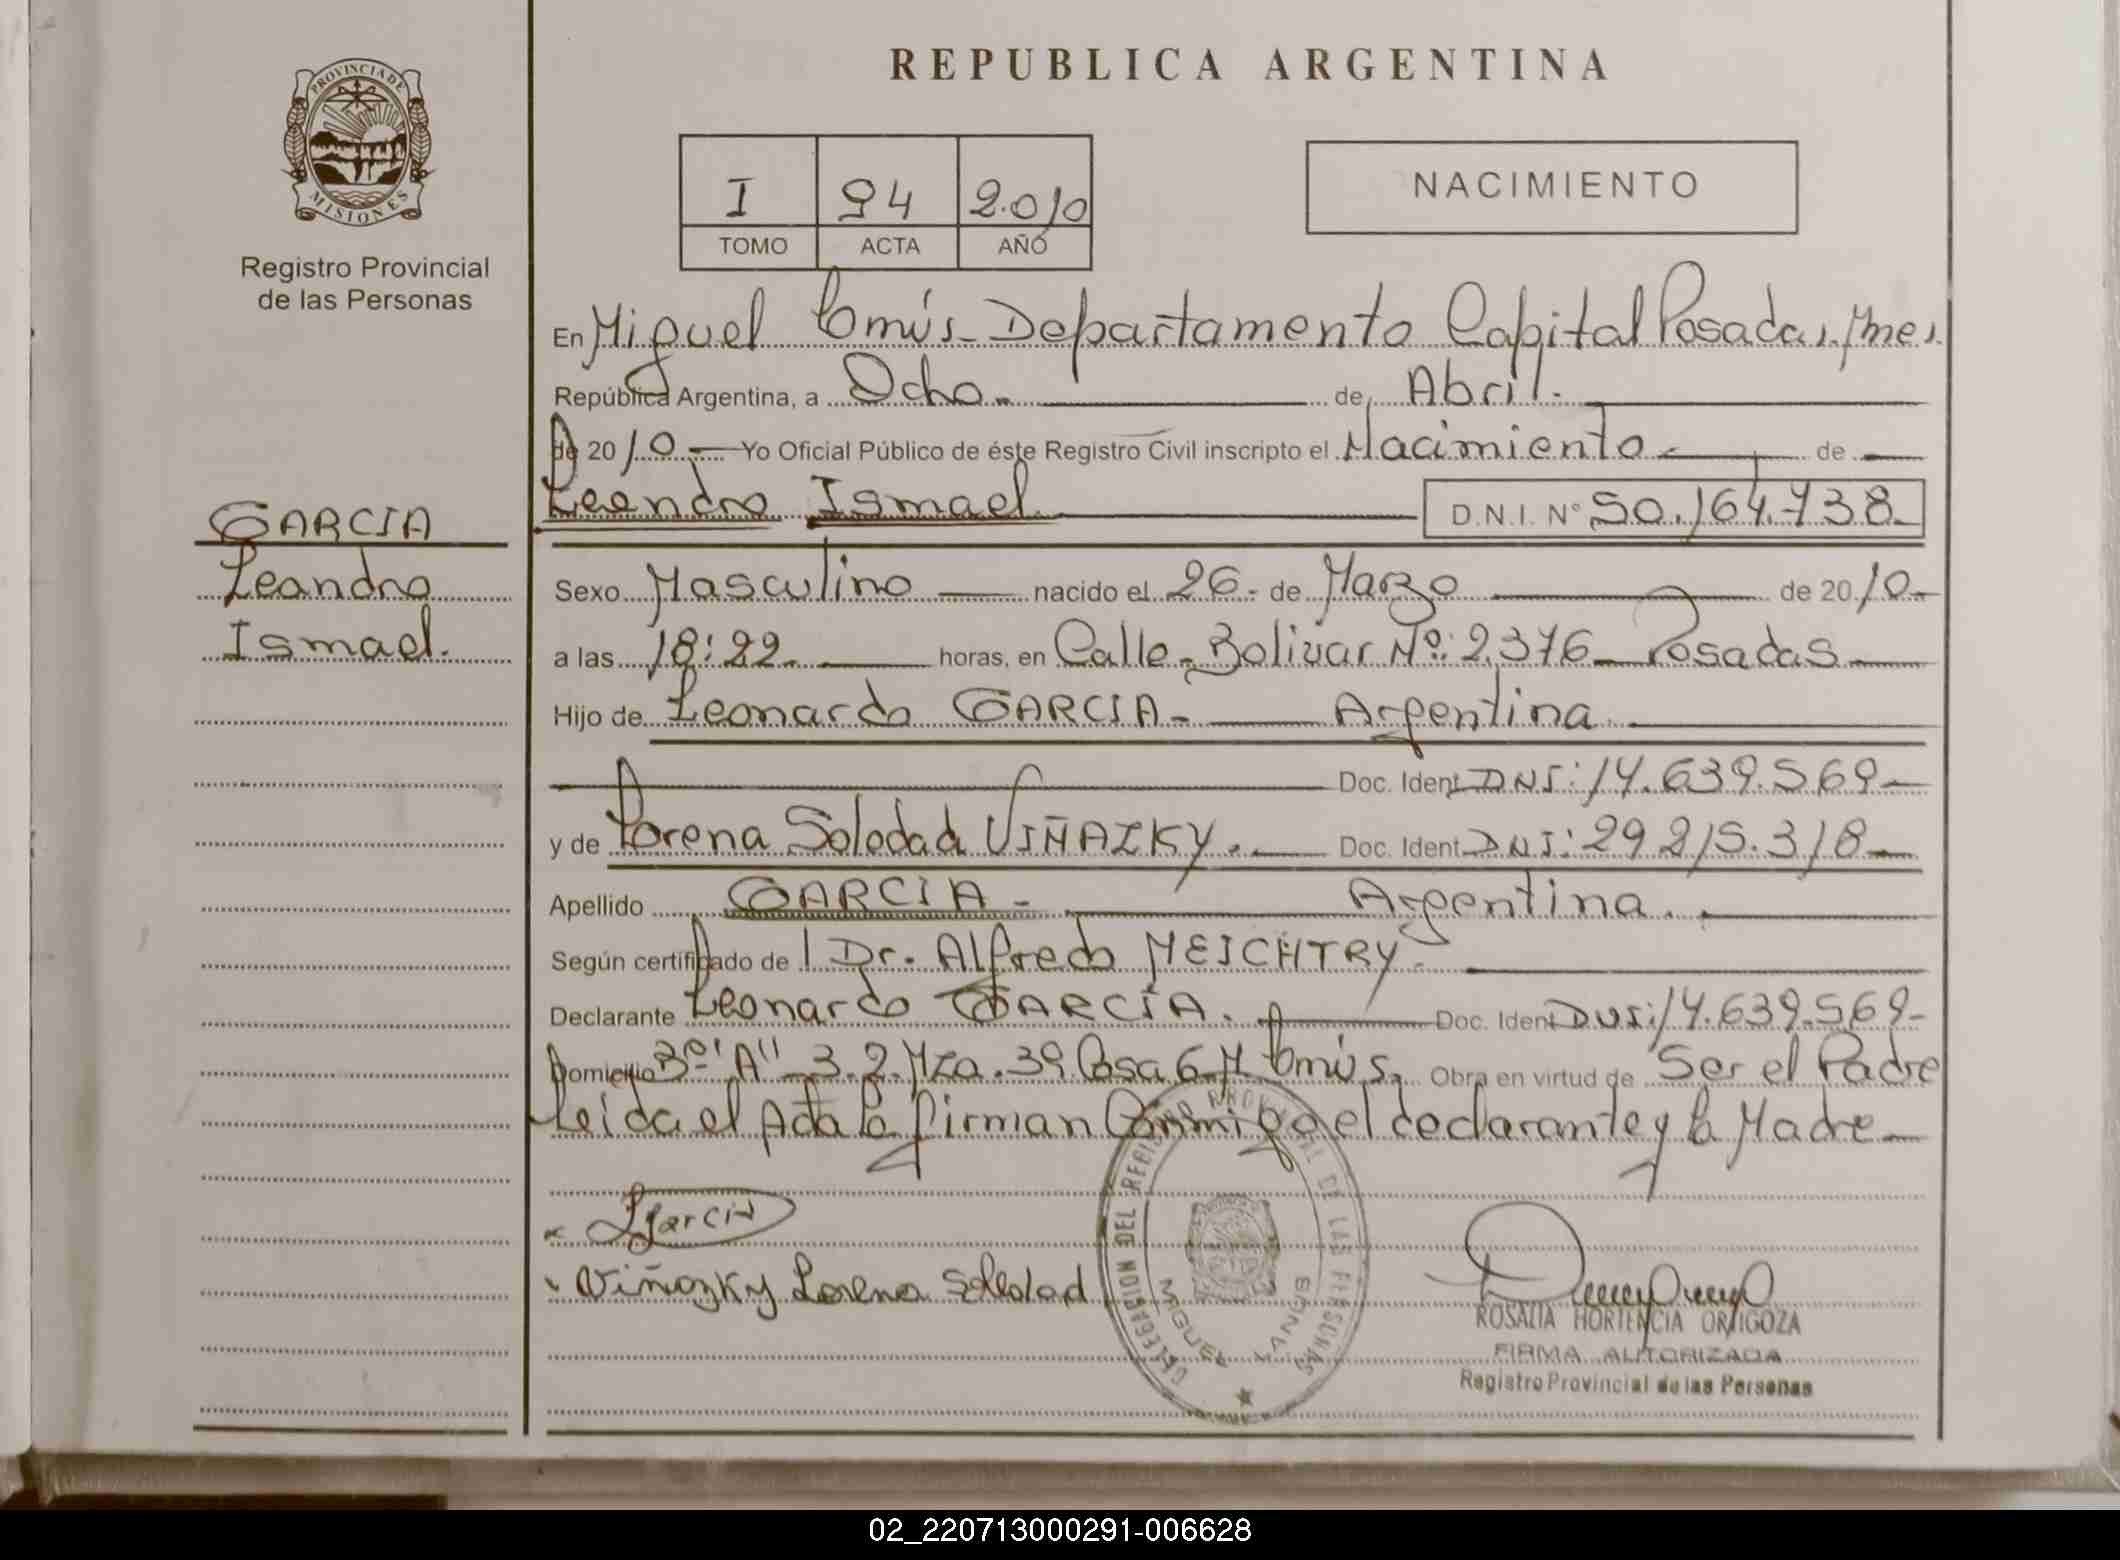 REPUBLICA ARGENTINA
PROVINCIA DE
MISIONES
Registro Provincial
de las Personas
I 94 2.010
TOMO ACTA AÑO
NACIMIENTO
En Miguel Lanús - Departamento Capital Posadas. Mnes.
República Argentina, a Ocho.- de Abril.
de 2010.- Yo Oficial Público de éste Registro Civil inscripto el Nacimiento de
Leandro Ismael. D.N.I. N° 50.164.738.-
GARCIA
Leandro
Ismael.
Sexo Masculino nacido el 26.- de Marzo de 2010.-
a las 18:22.- horas, en Calle - Bolivar Nº: 2.376 - Posadas
Hijo de Leonardo GARCIA.- Argentina.
Doc. Ident DNI: 14.639.569-
y de Lorena Soledad VIÑAZKY.- Doc. Ident DNI: 29.215.318-
Apellido GARCIA - Argentina.
Según certificado de l Dr. Alfredo MEICHTRY.
Declarante Leonardo GARCIA. Doc. Iden DNI: 14.639.569-
Domicilio 3º "A" 3.2. Mza. 39 Casa 6 M Lanús. Obra en virtud de Ser el Padre
Leida el Acta la firman Conmigo el declarante y la Madre
LGarcia
Viñazky Lorena Soledad
DELEGACION DEL REGISTRO PROVINCIAL DE LAS PERSONAS
MIGUEL LANUS
ROSALIA HORTENCIA ORTIGOZA
FIRMA AUTORIZADA
Registro Provincial de las Personas
02_220713000291-006628